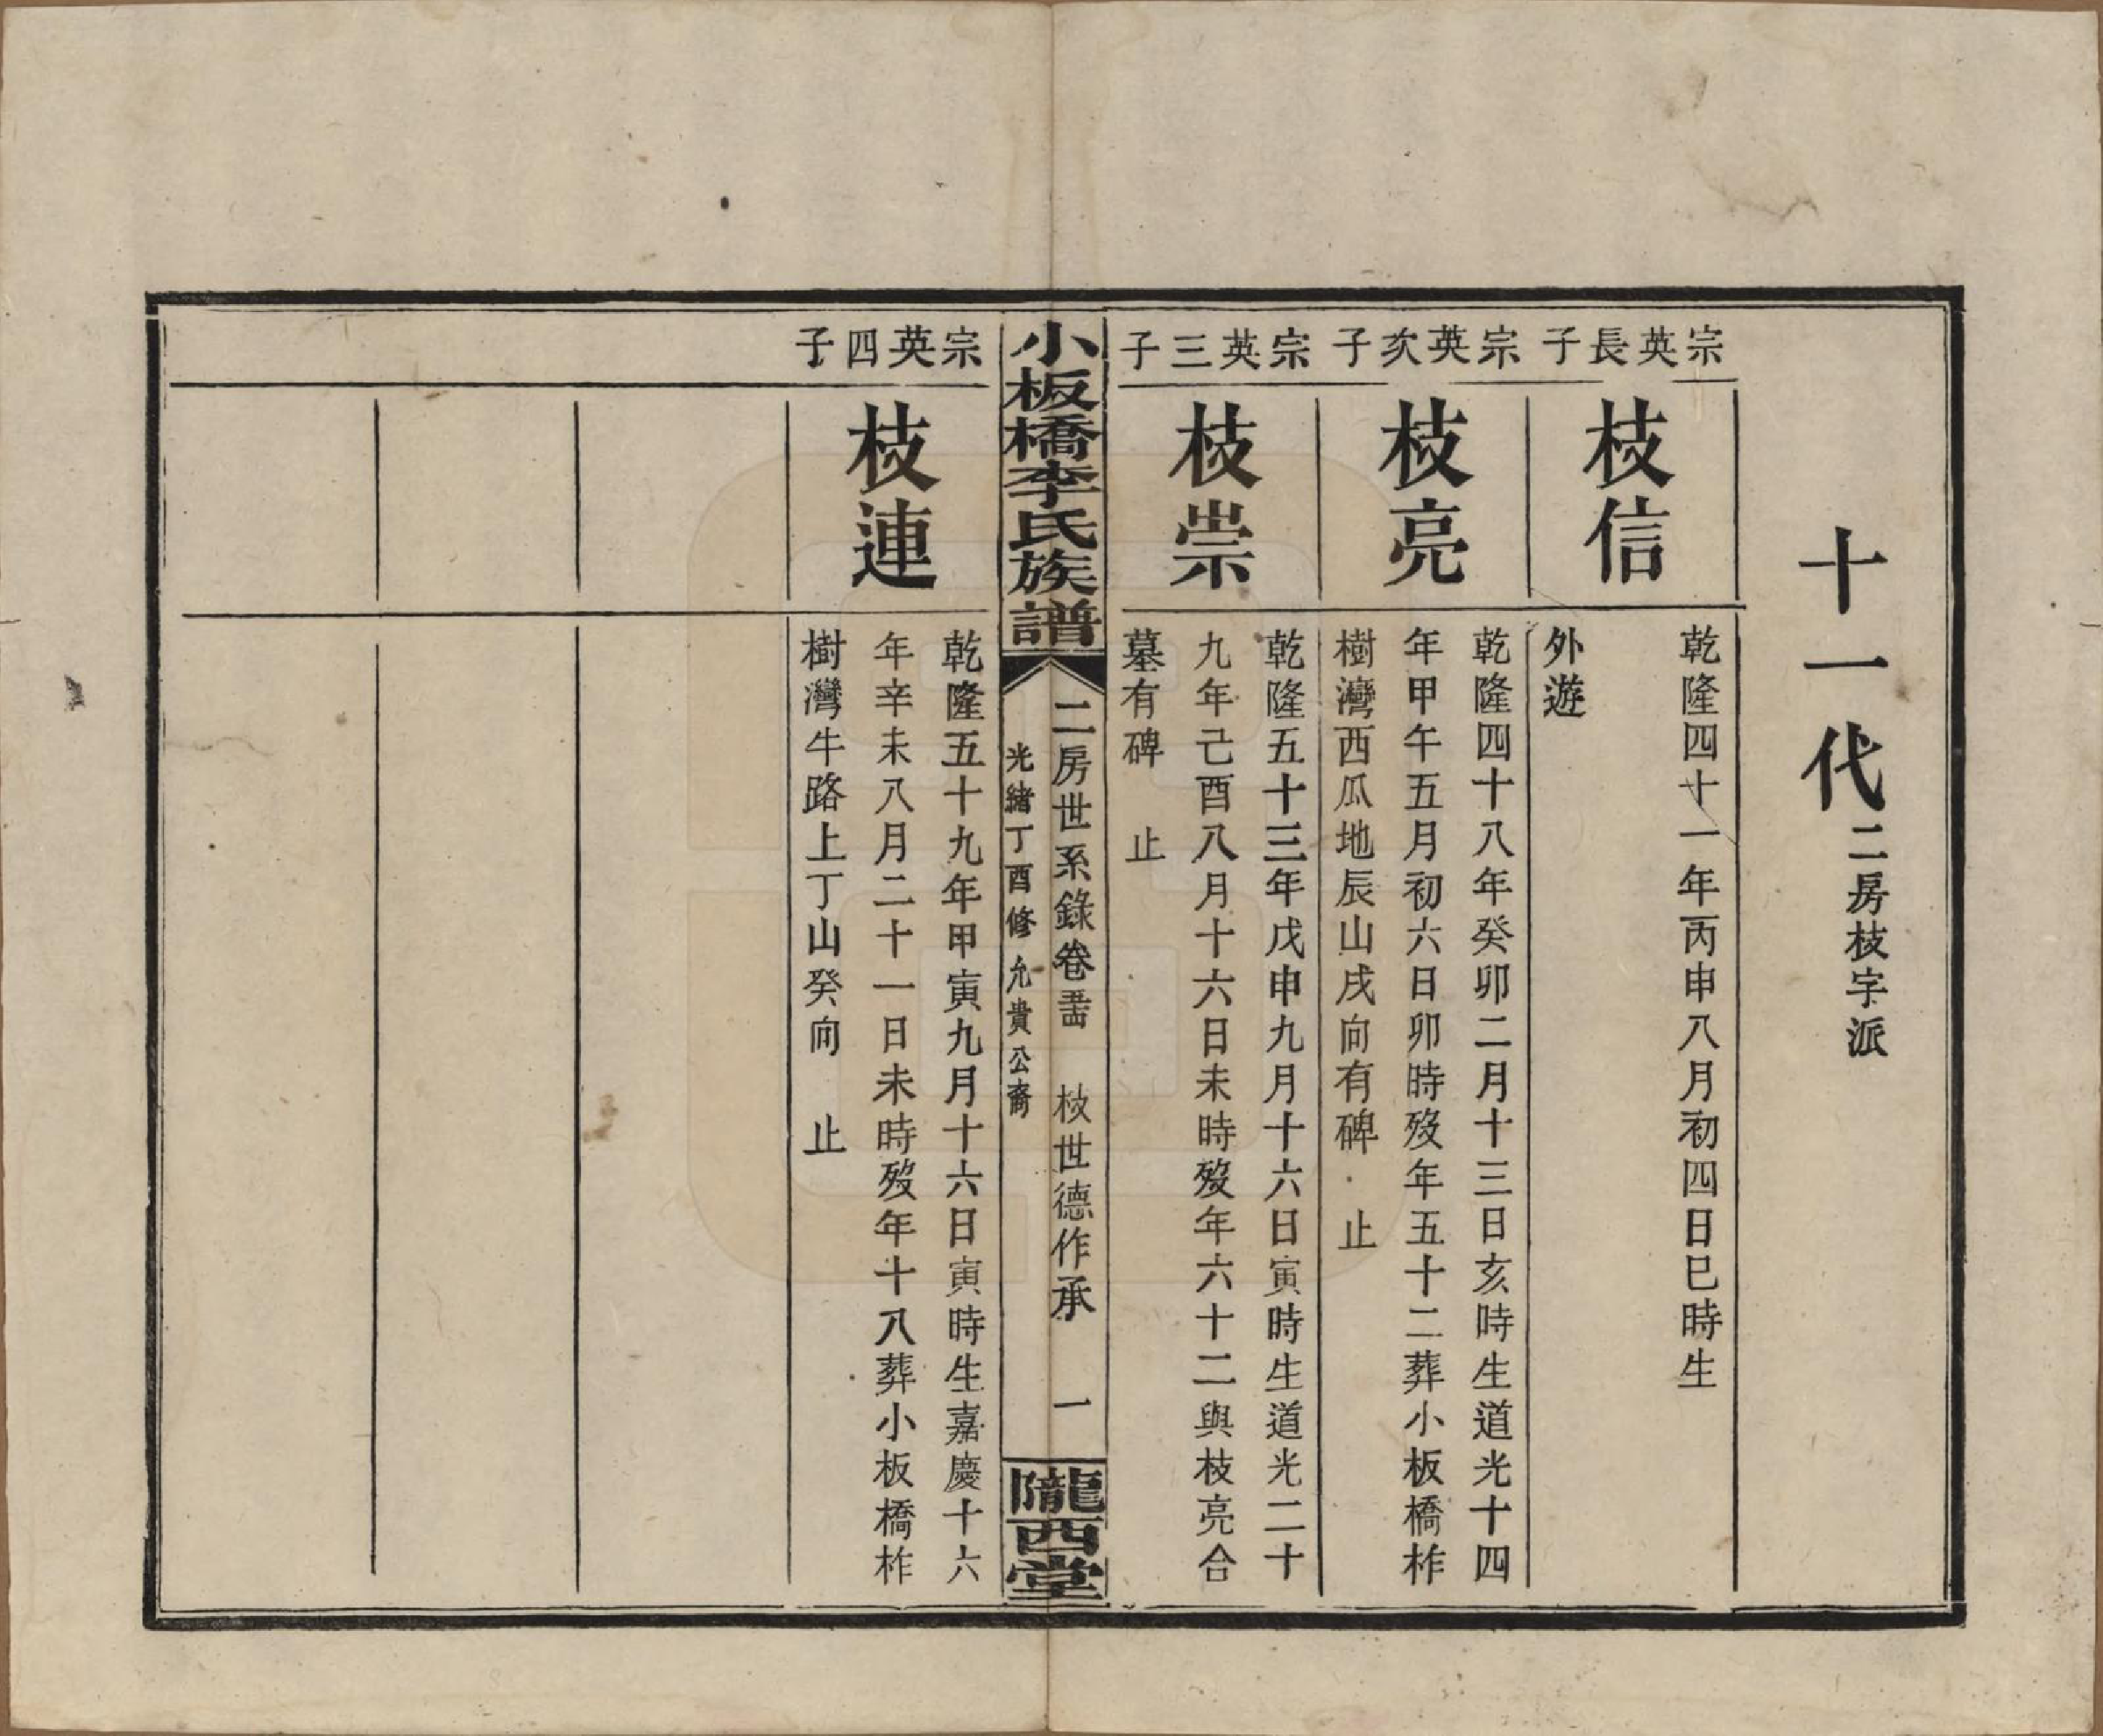 十一代
二房枝字派
宗英長子
枝信
乾隆四十一年丙申八月初四日巳時生
外遊
宗英次子
枝亮
乾隆四十八年癸卯二月十三日亥時生道光十四
年甲午五月初六日卯時殁年五十二葬小板橋柞
樹灣西瓜地辰山戌向有碑 止
宗英三子
枝崇
乾隆五十三年戊申九月十六日寅時生道光二十
九年己酉八月十六日未時殁年六十二與枝亮合
墓有碑 止
小板橋李氏族譜
二房世系錄卷 枝世德作承 一
光緒丁酉修 允貴公裔
隴西堂
宗英四子
枝連
乾隆五十九年甲寅九月十六日寅時生嘉慶十六
年辛未八月二十一日未時殁年十八葬小板橋柞
樹灣牛路上丁山癸向 止